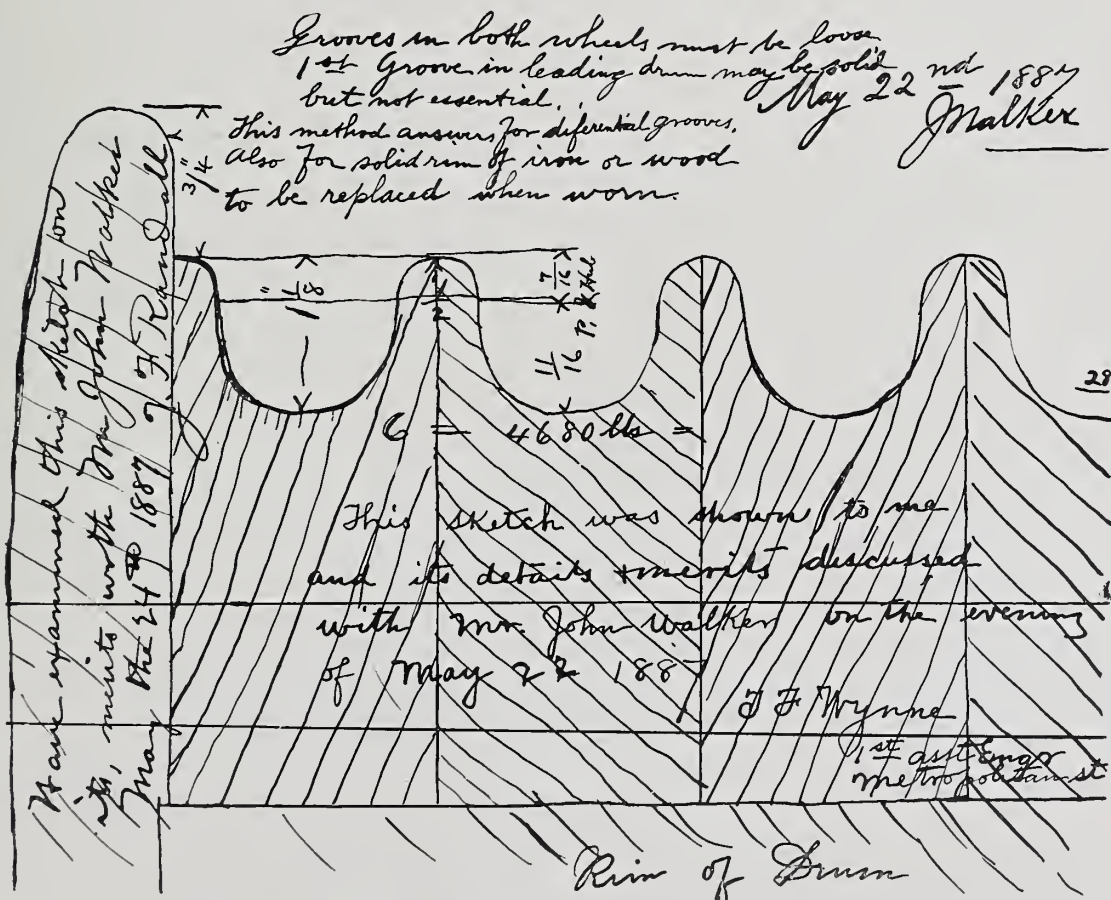 Grooves in both wheels must be loose
1st Groove in leading drum may be solid
but not essential.
May 22nd 1887
J Walker
This method answers for diferential grooves.
Also for solid rim of iron or wood
to be replaced when worn.
3/4"
1 1/8"
1/2
7/16
11/16
28
6 = 4680 lbs =
Have examined this sketch on
its, merits with Mr John Walker
May the 24th 1887 J. F. Randall
This sketch was shown to me
and its details + merits discussed
with Mr. John Walker on the evening
of May 22 1887
F F Wynne
1st asst Engr
Metropolitan st
Rim of Drum